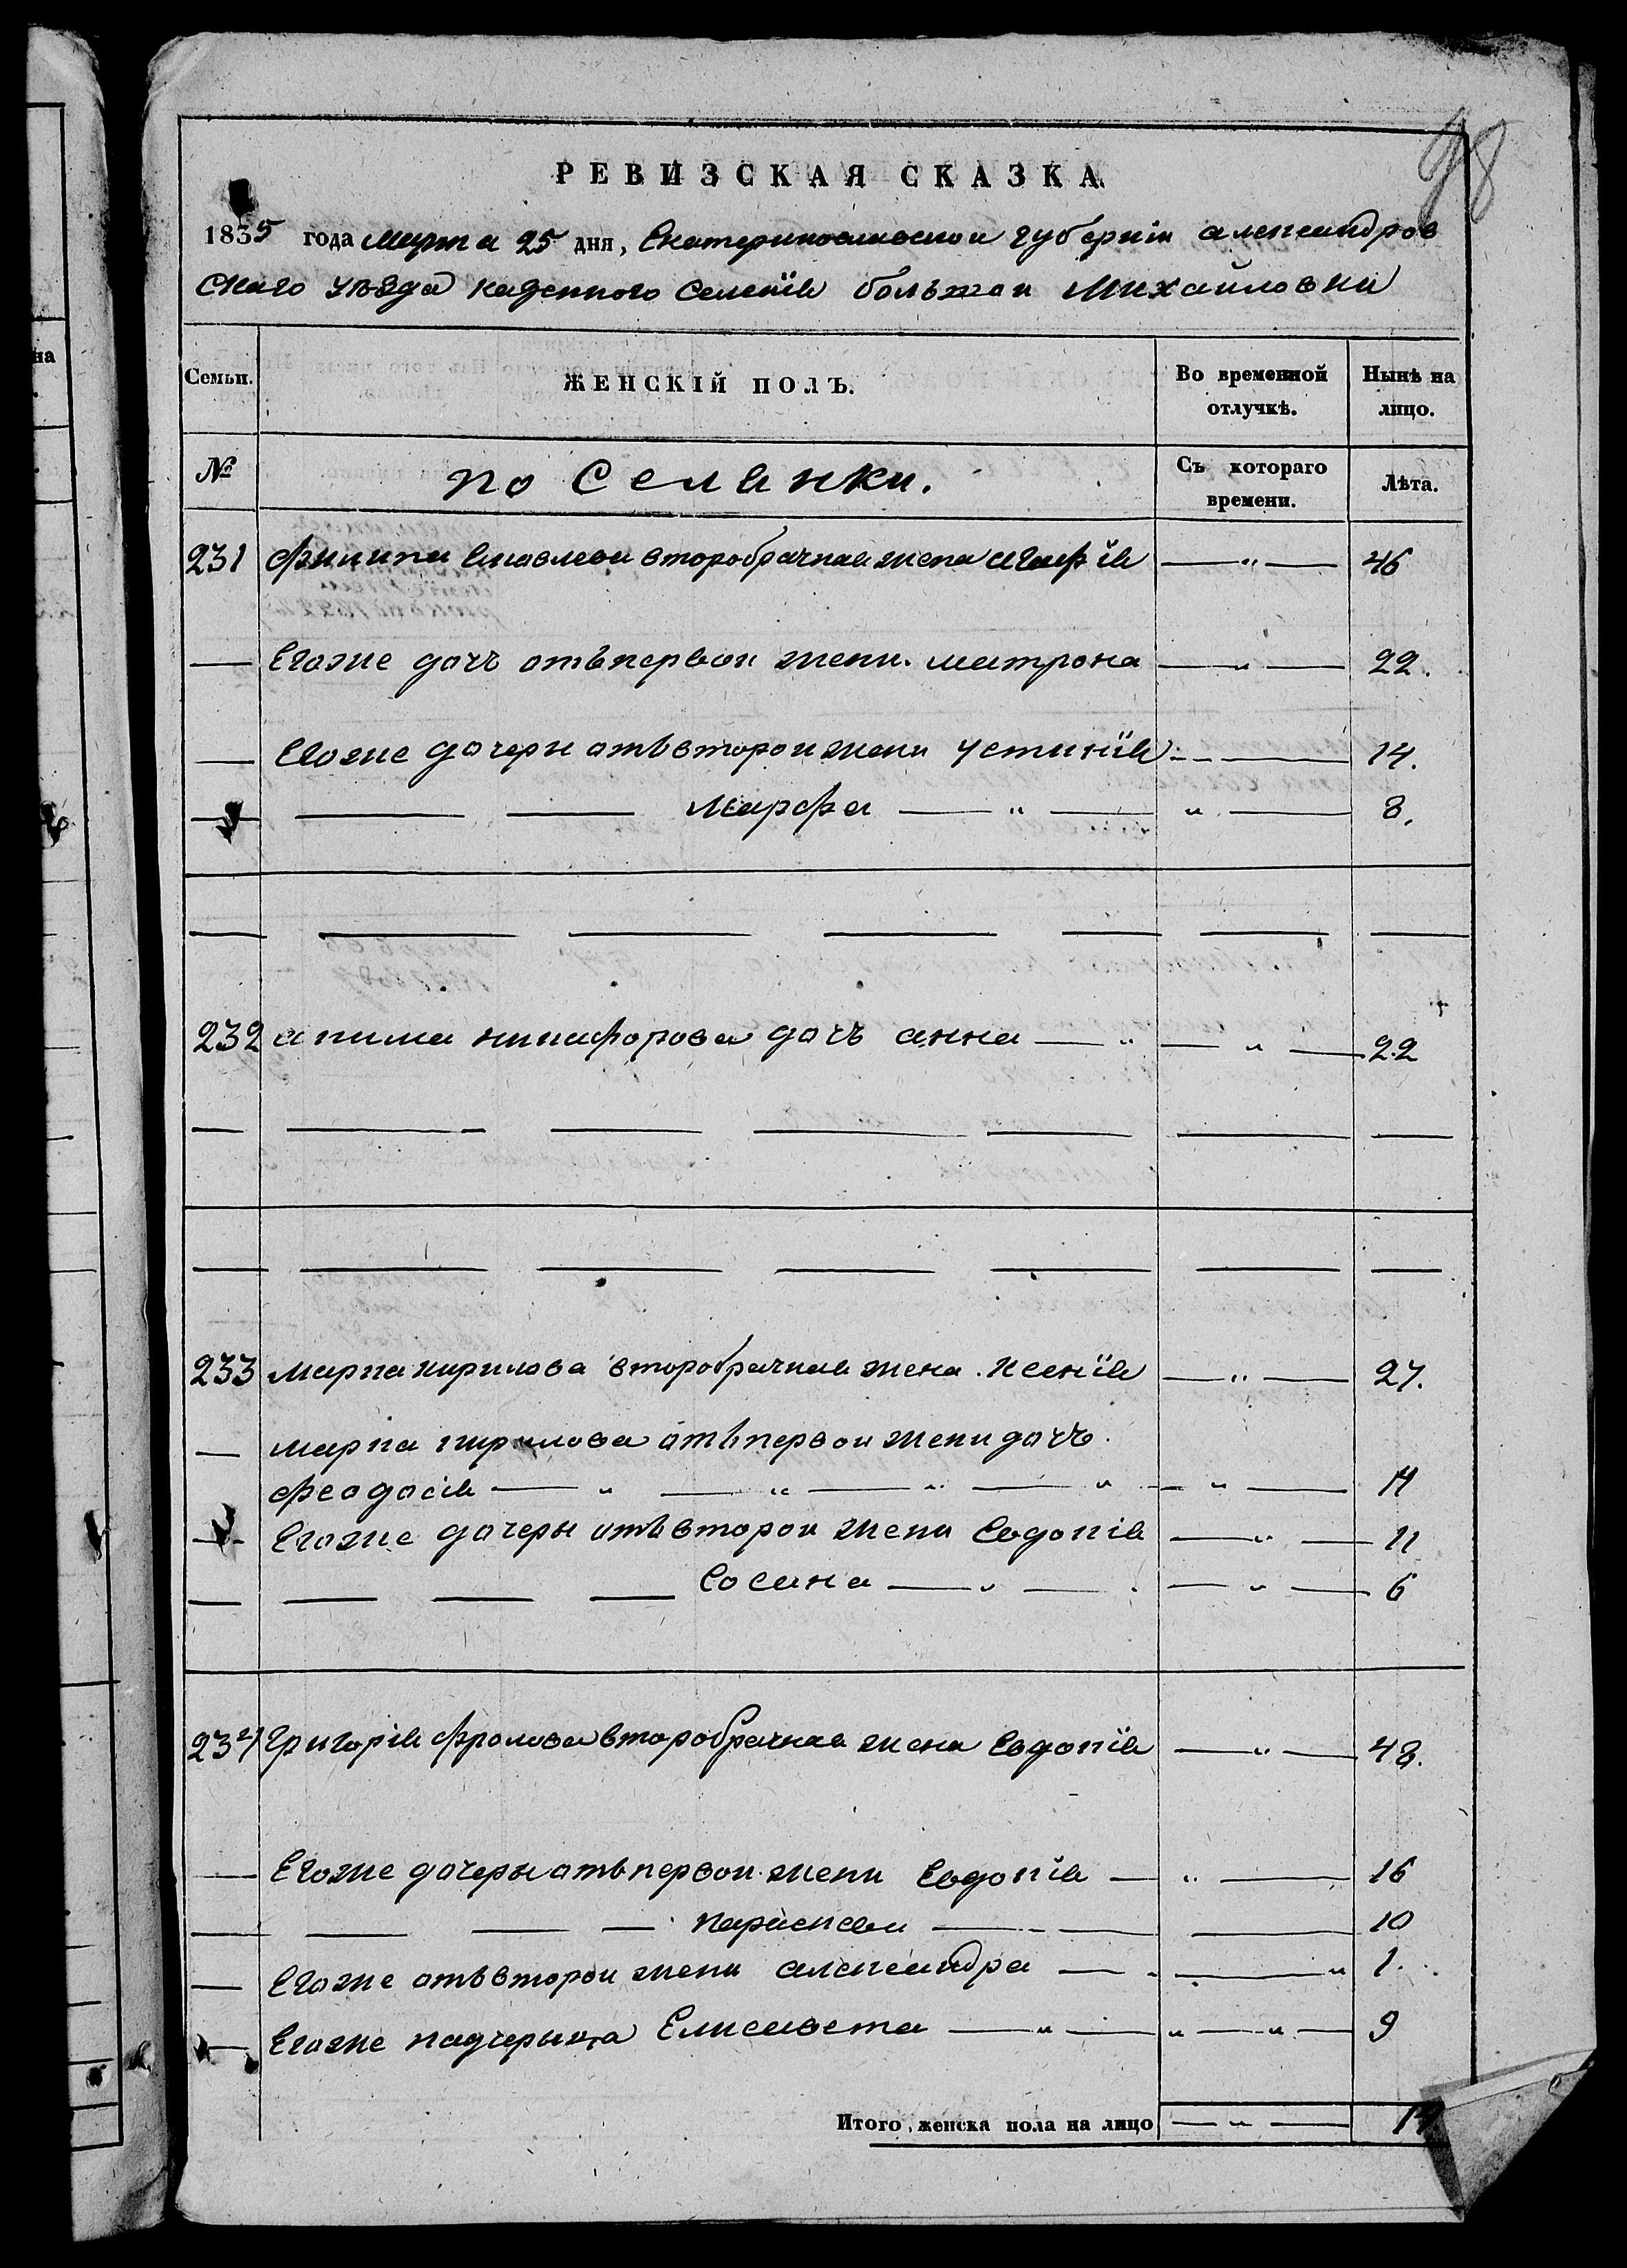 98
РЕВИЗСКАЯ СКАЗКА.
1835 года марта 25 дня, Екатеринославской губернiи александров
скаго уѣзда казенного Селенiя большой Михайловки
Семьи. ЖЕНСКІЙ ПОЛЪ. Во временной отлучкѣ. Нынѣ на лицо.
№ поселянки. Съ котораго времени. Лѣта.
231 филипа второбрачная жена агафiя — „ — 46
— Егоже дочъ отъ первой жени. матрона — „ — 22.
— Егоже дочеры отъ второй жени устинiя — 14.
— — — марфа — „ — „ — 8.
232 акима никифорова дочъ анна — „ — „ — 22
233 марка кирилова второбрачная жена. Ксенiя — „ — 27.
— марка кирилова отъ первой жени дочъ.
феодосiя — „ — „ — „ — „ — „ — 14
— Егоже дочеры отъ второй жени Евдокiя — „ — 11
— — — — Сосана — „ — — „ — 6
234 Григорiя фролова второбрачная жена Евдокiя — „ — 48.
— Егоже дочеры отъ первой жени Евдокiя — „ — 16
— — — — параскева — — — 10
— Егоже отъ второй жени александра — — „ 1.
— Егоже падчерыца Елисавета — „ — „ — „ — 9
Итого женска пола на лицо — „ — 14